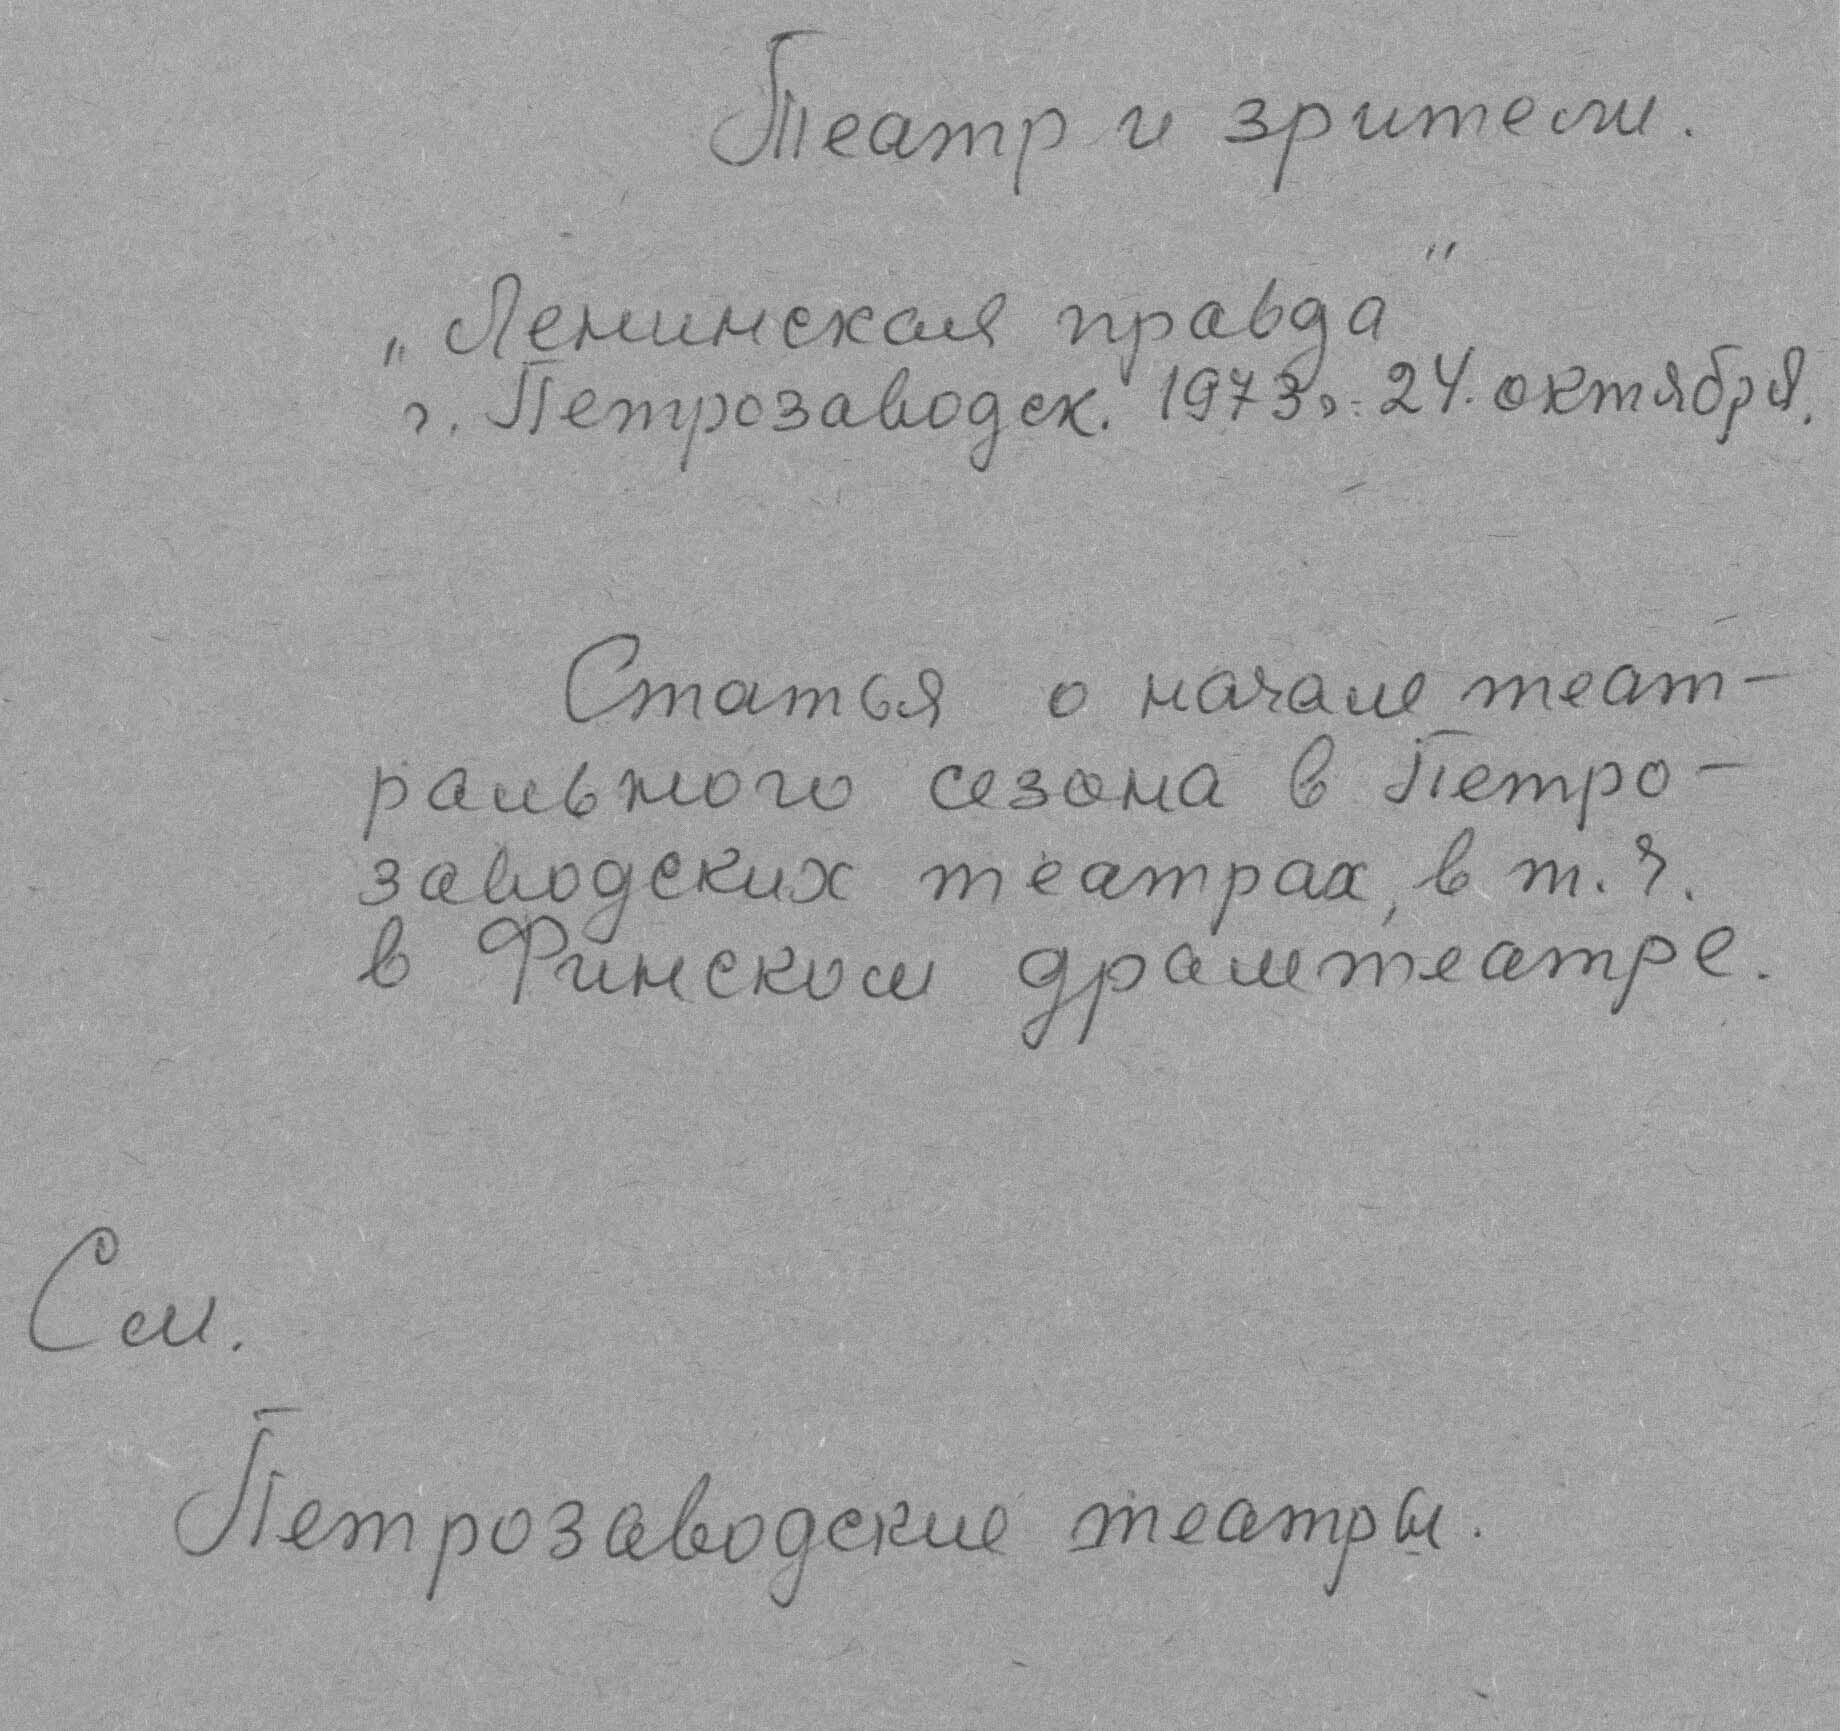 Театр и зрители.
„Ленинская правда"
г. Петрозаводск. 1973 г. 24. октября.
Статья о начале теат-
рального сезона в Петро-
заводских театрах, в т. ч.
в Финском драмтеатре.
См.
Петрозаводские театры.